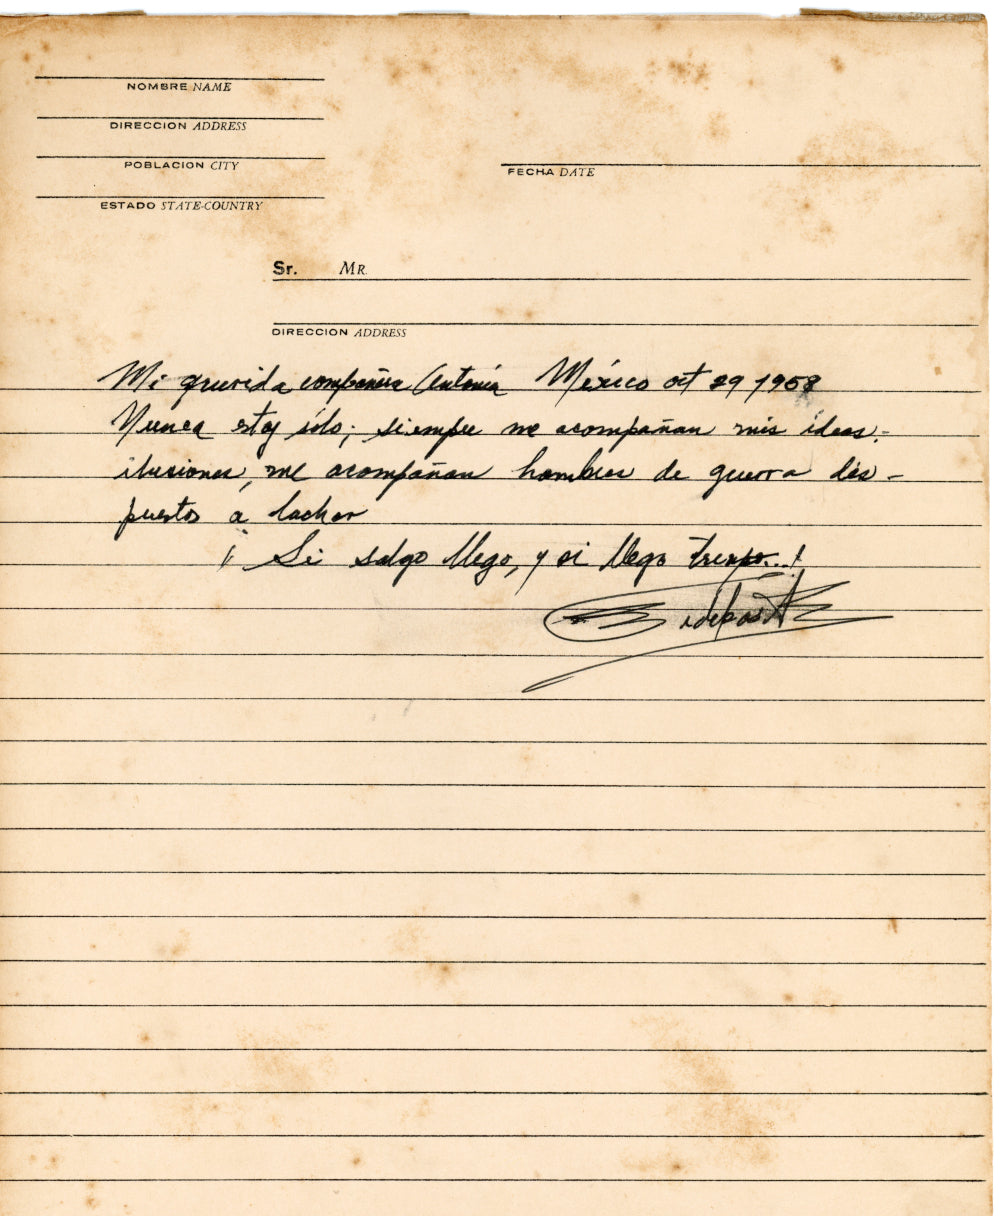 NOMBRE NAME
DIRECCION ADDRESS
POBLACION CITY
FECHA DATE
ESTADO STATE-COUNTRY
Sr. MR
DIRECCION ADDRESS
Mi querida compañera Antonia México oct 29 1958
Nunca estoy sólo; siempre me acompañan mis ideas.
ilusiones, me acompañan hombres de guerra dis-
puestos a luchar
¡Si salgo llego, y si llego triunfo...!